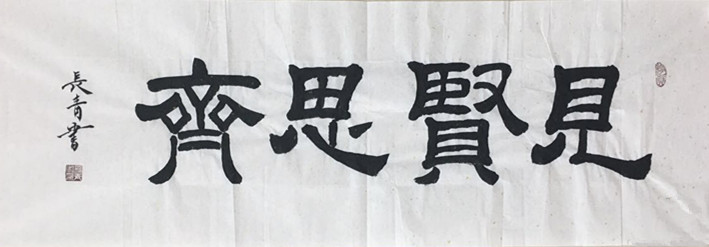 見賢思齊
長青書